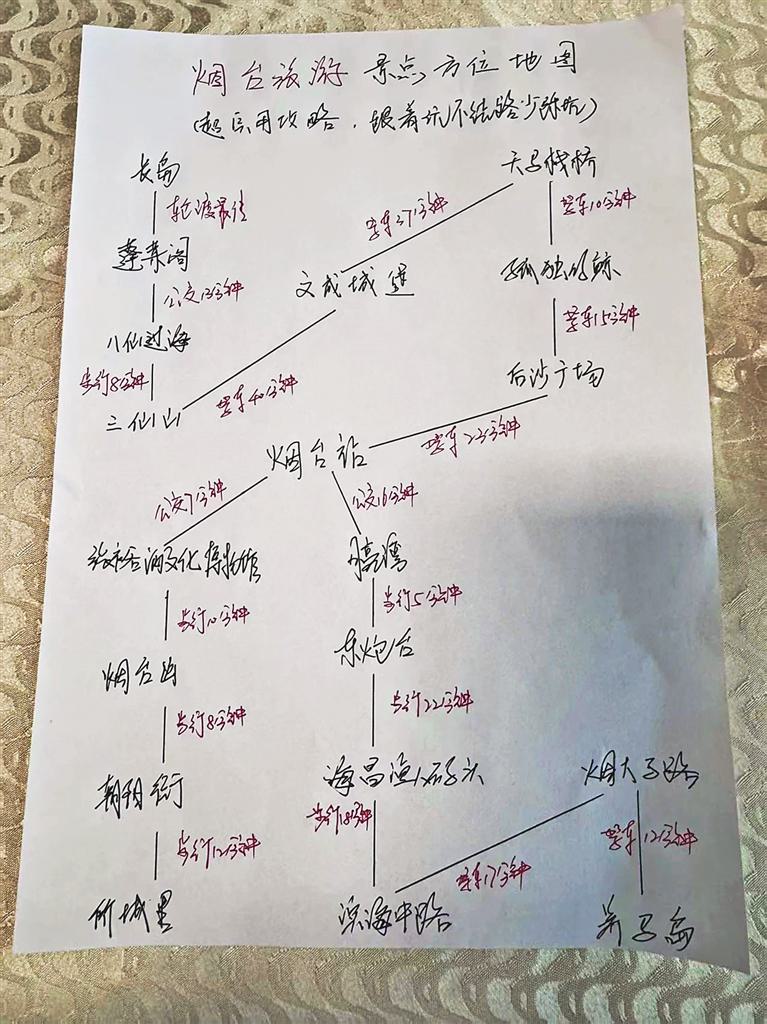 烟台旅游景点方位地图
(超实用攻略，跟着玩不绕路少踩坑)
长岛
天马栈桥
轮渡最佳
驾车37分钟
驾车10分钟
蓬莱阁
文成城堡
孤独的鲸
公交13分钟
驾车15分钟
八仙过海
步行8分钟
三仙山
驾车40分钟
后沙广场
烟台站
驾车23分钟
公交7分钟
公交16分钟
张裕酒文化博物馆
月亮湾
步行10分钟
步行5分钟
东炮台
烟台山
步行8分钟
步行22分钟
朝阳街
海昌渔人码头
烟大马路
步行18分钟
步行12分钟
驾车17分钟
驾车12分钟
所城里
滨海中路
养马岛